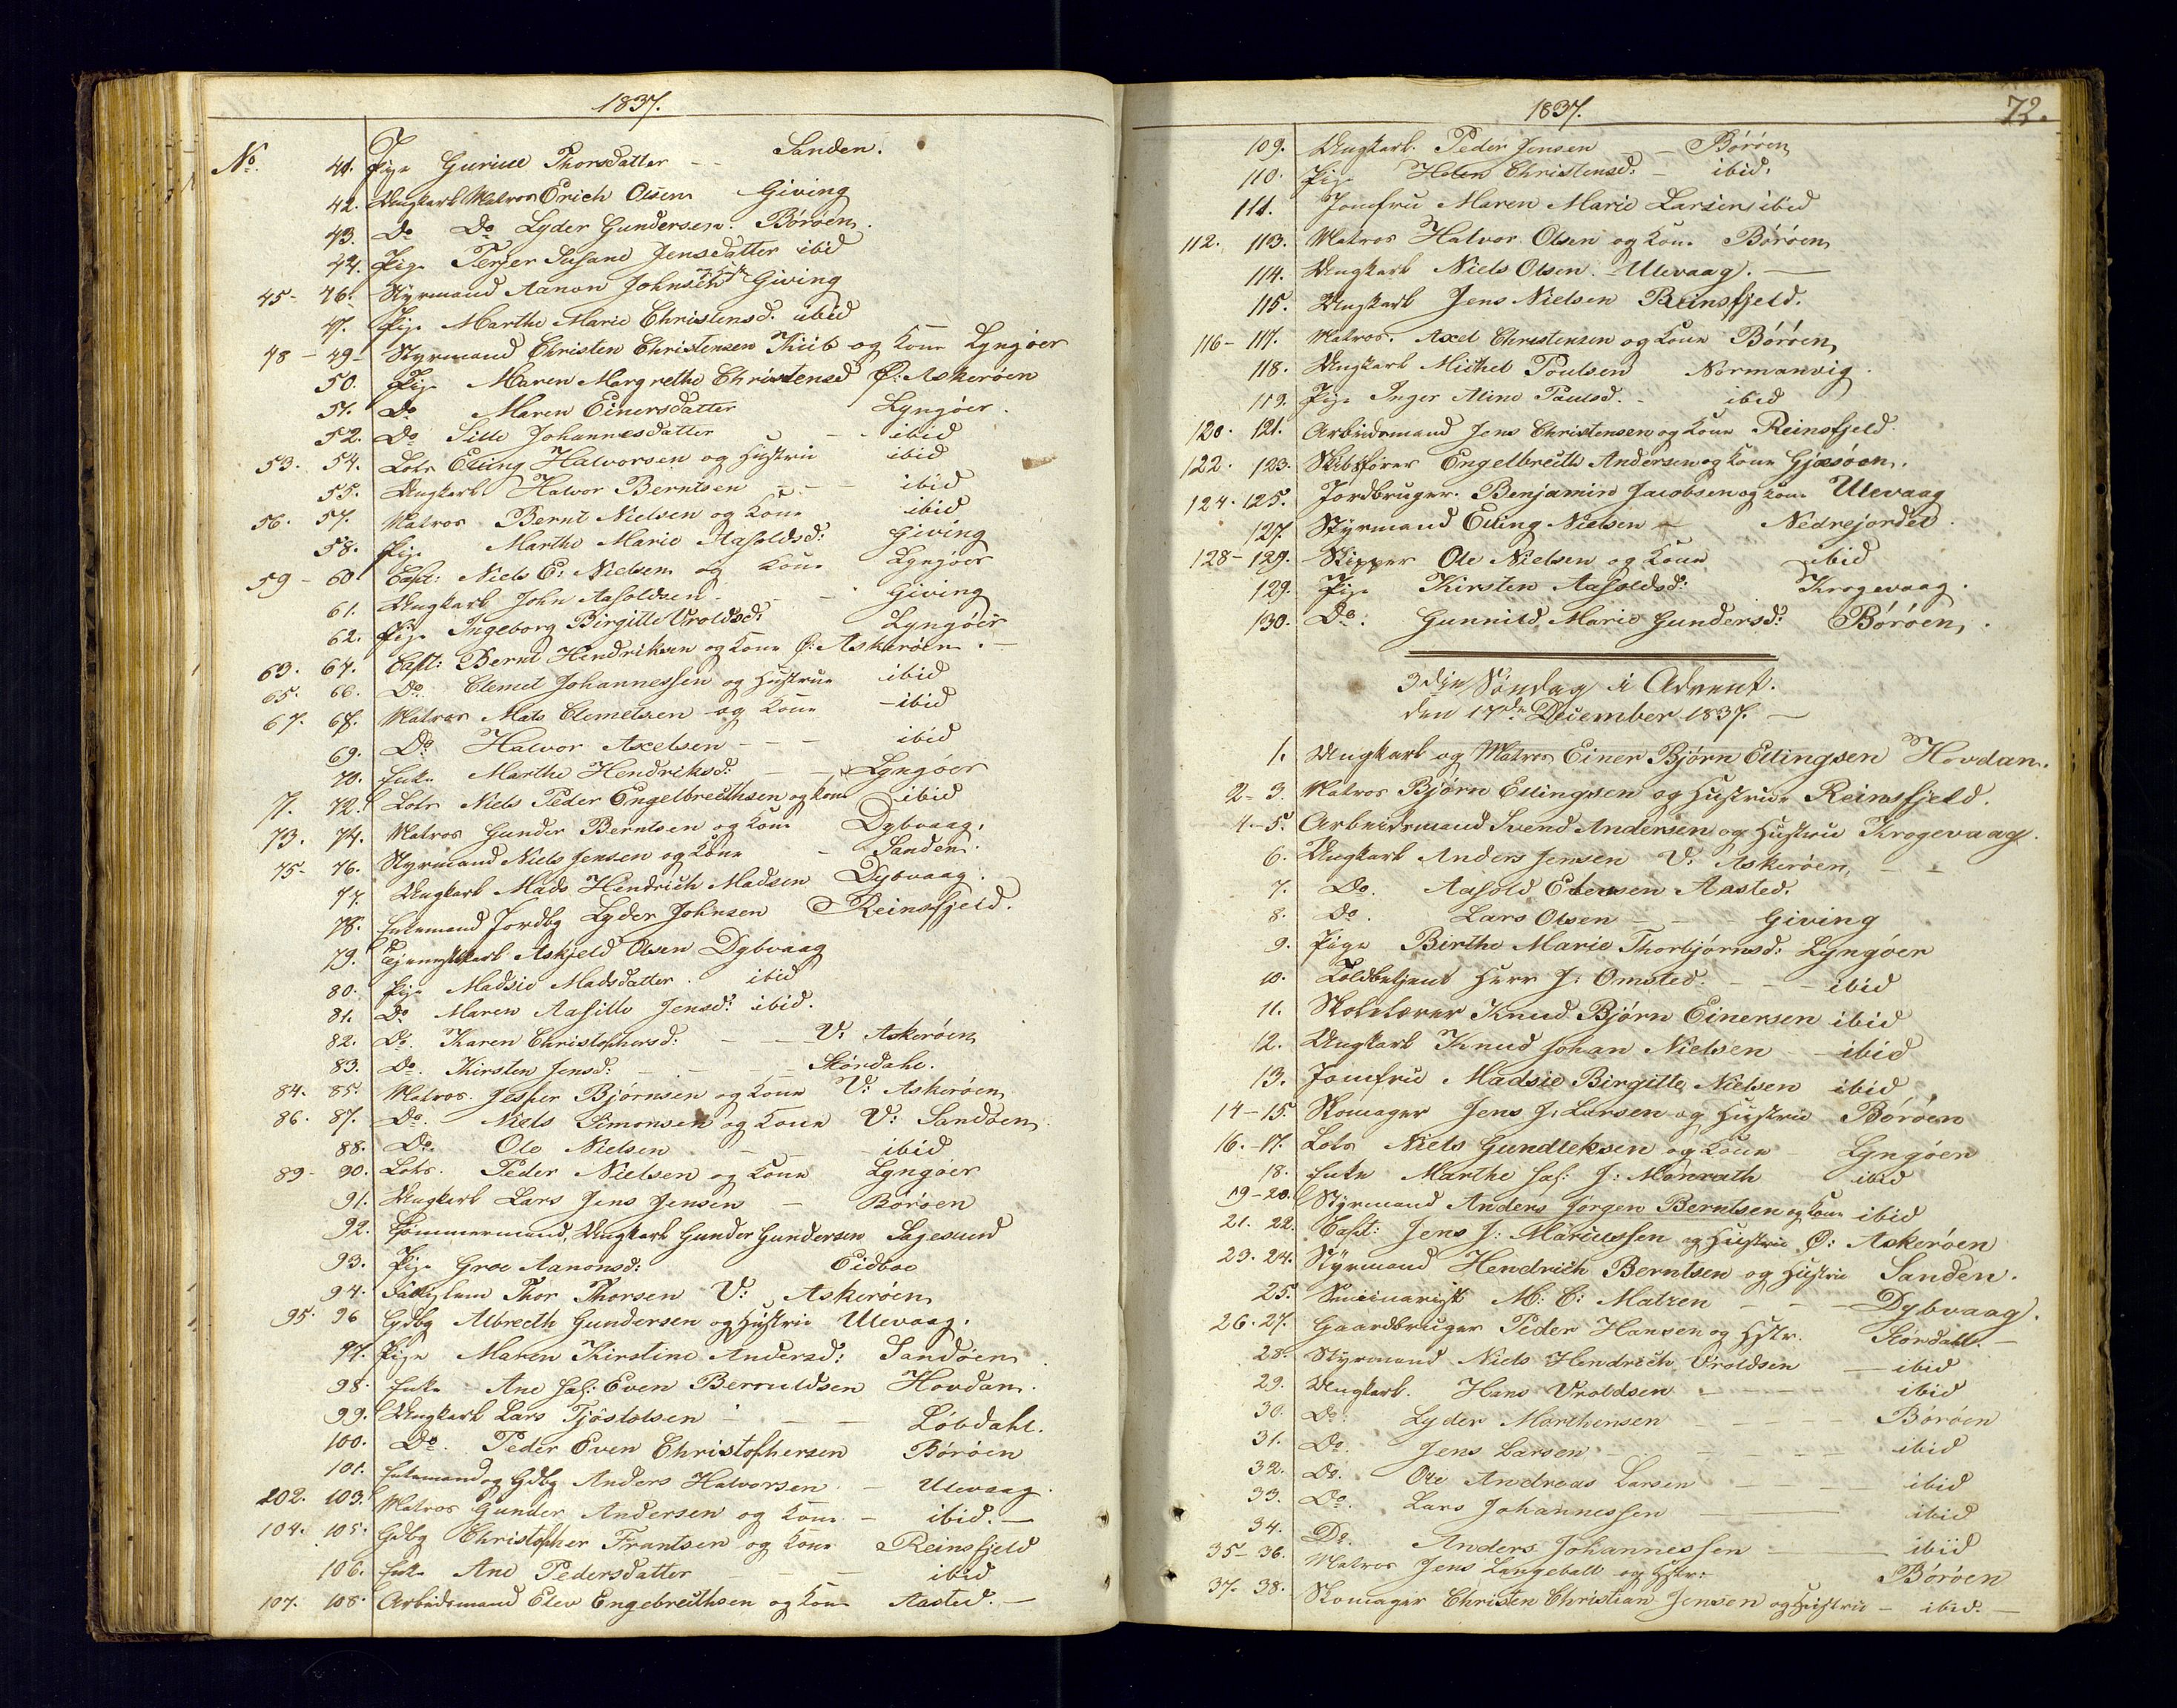 1837.
No. 41. Pige Guriue Thorsdatter - - Sanden.
42. Ungkarl Matros Erich Olsen Giving
43. Do Do Lyder Gundersen. Böröen.
44. Pige Terjer Susane Jensdatter ibid
45- 46. Styrmand Aanon Johnsen Giving
47. Pige Marthe Marie Christensd. ibid
48 - 49 - Styrmand Christen Christensen Thiis og Kone Lyngöer
50. Pige Maren Margrethe Christensd Ø: Askeröen
51. Do Maren Einersdatter Lyngöer.
52. Do Sille Johannesdatter - - ibid
53. 54. Lots Elling Halvorsen og Hustrue ibid
55. Ungkarl Halvor Berntsen - - - ibid
56. 57. Matros Bernt Nielsen og Kone ibid
58. Pige Marthe Marie Aasoldsd: Giving
59 - 60. Capt: Niels E: Nielsen og Kone Lyngöer
61. Ungkarl John Aasoldsen - - - Giving
62. Pige Ingeborg Birgitte Uroldsd: Lyngöer
63. 64. Capt: Bernt Hendriksen og Kone Ø: Askeröen. -
65. 66. Do Clemet Johannessen og Hustrue ibid
67. 68. Matros Mats Clemetsen og Kone - ibid
69. Do Halvor Axelsen - - - ibid
70. Enke Marthe Hendriksd: - - Lyngöer
71. 72. Lots Niels Peder Engelbrecthsen og Kone ibid
73. 74. Matros Gunder Berntsen og Kone Dybvaag.
75- 76. Styrmand Niels Jensen og Kone - Sanden.
77. Ungkarl Mads Hendrich Madsen Dybvaag.
78. Enkemand Jordbg Lyder Johnsen Reinsfjeld.
79. Askjeld Olsen Dybvaag
80. Pige Madsie Madsdatter. ibid
81. Do Maren Aasille Jensd: ibid.
82. Do. Karen Christophersd: - - V: Askeröen
83. Do. Kirsten Jensd: - - - Skördahl.
84. 85. Matros. Jesper Bjørnsen og Kone V: Askeröen
86. 87. Do. Niels Simonsen og Kone V: Sandöen
88. Do. Ole Nielsen - - - ibid
89- 90. Lots. Peder Nielsen og Kone Lyngöer
91. Ungkarl Lars Jens Jensen - Börsen
92. Tömmermand, Ungkarl Gunder Gundersen Sagesund
93. Pige Groe Aanonsd: Eidboe
94. Thor Thorsen V: Askeröen
95. 96 Gdbg Albrecth Gundersen og Hustrue Ulevaag.
97. Pige Maren Kirstine Andersd: Sandöen
98. Enke Ane sal: Even Berouldsen Hovdan.
99. Ungkarl Lars Tjöstolsen - - - Lövdahl.
100. Do. Peder Even Christophersen Böröen
101. Enkemand og Gdbg Anders Halvorsen - Ulevaag.
102. 103. Matros Gunder Andersen og Kone - ibid. -
104. 105. Gdbg Christopher Frantsen og Kone Reinsfjeld
106. Enke Ane Pedersdatter - - - ibid
107. 108. Arbeidsmand Elev Engebrecthsen og Kone Aasted. -
1837. 72.
109. Ungkarl. Peder Jensen - - Böröen
110. Pige Helen Christensd: - ibid.
111. Jomfru Maren Marie Larsen, ibid
112. 113. Matros Halvor Olsen og Kone Böröen
114. Ungkarl Niels Olsen. Ulevaag. -
115. Ungkarl Jens Nielsen Reinsfjeld.
116- 117. Matros. Axel Christensen og Kone Böröen
118. Ungkarl Michel Poulsen Normanvig.
119. Pige Inger Aline Paulsd. - ibid
120. 121. Arbeidsmand Jens Christensen og Kone Reinsfjeld.
122. 123. Skibsförer Engelbrecth Andersen og Kone Gjæsöen.
124. 125. Jordbruger. Benjamin Jacobsen og Kone Ulevaag
127. Styrmand Elling Nielsen - Nedrejordet.
128- 129. Skipper Ole Nielsen og Kone ibid
129. Pige Kirsten Aasoldsd: Krogevaag.
130. Do. Gunnild Marie Gundersd: Böröen.
3die Söndag i Advent.
den 17de December 1837. -
1. Ungkarl og Matros Einer Bjørn Ellingsen Hovdan.
2- 3. Matros Bjørn Ellingsen og Hustrue Reinsfjeld.
4-5. Arbeidsmand Svend Andersen og Hustrue Krogevaag.
6. Ungkarl Anders Jensen V: Askeröen - -
7. Do. Aasold Edensen Aasted.
8. Do. Lars Olsen - - Giving
9. Pige Birthe Marie Thorbjørnsd: Lyngöer
10. Toldbetjent Herr J: Omsted. - - - ibid
11. Skolelærer Knud Bjørn Einersen ibid
12. Ungkarl Knud Johan Nielsen - ibid
13. Jomfrue Madsie Birgitte Nielsen ibid
14-15. Skomager Jens J: Larsen og Hustrue Böröen
16.-17. Lots Niels Gundleksen og Kone - Lyngöen
18. Enke Marthe sal: J: Monrath ibid
19-20. Styrmand Anders Jörgen Berntsen og Kone ibid
21. 22. Capt: Jens J: Mariussen og Hustrue Ø: Askeröen
23. 24. Styrmand Hendrich Berntsen og Hustrue Sanden.
25. Seminarist M: C: Matzen - - - Dybvaag.
26. 27. Gaardbruger Peder Hansen og Hstr. Skördahl. -
28. Styrmand Niels Hendrich Uroldsen - ibid
29. Ungkarl. Hans Uroldsen - - - ibid
30. Do. Lyder Morthensen - - - - Böröen
31. Do. Jens Larsen - - - - ibid
32. Do. Ole Andreas Larsen - - - - ibid
33. Do. Lars Johannessen - ibid
34. Do. Anders Johannessen - ibid
35-36. Matros Jens Langeball og Hstr: Böröen
37. 38. Skomager Christen Christian Jensen og Hustrue - ibid. -